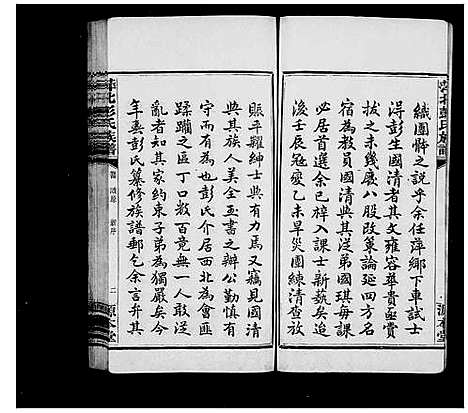 萍北彭氏族譜
源本堂
織團骿之說乎余任萍鄉下車試士
淂彭生國清者其文雍容華貴亟賞
拔之未幾廢八股改策論延四方名
宿為教員國清與其從弟國琪每課
必居首選余已梓入課士新藝矣迨
後壬辰冠變乙未旱災團練清查放
賑平糶紳士與有力焉又竊見國清
與其族人美全玉書之辦公勤慎有
守而有為也彭氏介居西北為會匪
蹂躪之區丁口數百竟無一人敢泛
亂者知其家約束子弟為獨嚴矣今
年衷彭氏纂修族譜郵乞余言弁其
萍北彭氏族譜
序
二
源本堂